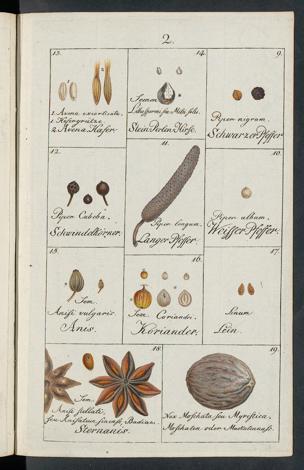 2.
13.
1. Avena excorticata.
1. Hafergrütze.
2. Avena Hafer.
14.
Semen
Lithospermi seu Milii solis.
Stein Perlen Hirse.
9.
Piper nigrum.
Schwarzer Pfeffer
12.
Piper Cubeba.
Schwindelkörner.
11.
Piper longum.
Langer Pfeffer.
10.
Piper album.
Weisser Pfeffer.
15.
Sem.
Anisi vulgaris.
Anis.
16.
Sem. Coriandri.
Koriander.
Linum
Lein.
18.
Sem.
Anisi stellati,
seu Badiani.
Sternanis.
19.
Nux Moschata seu Myristica.
Moschaten oder Muskatennuss.